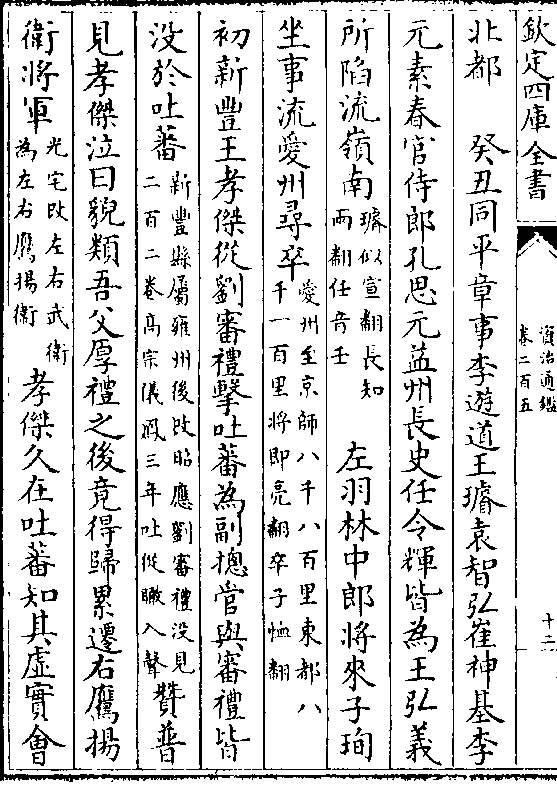 欽定四庫全書
資治通鑑
卷二百五
十二
北都　癸丑同平章事李遊道王璿袁智弘崔神基李
元素春官侍郎孔思元益州長史任令輝皆為王弘義
所陷流嶺南璿似宣翻長知兩翻任音壬　左羽林中郎將來子珣
坐事流愛州尋卒愛州至京師八千八百里東都八千一百里將即亮翻卒子恤翻
初新豐王孝傑從劉審禮擊吐蕃為副摠管與審禮皆
没於吐蕃新豐縣屬雍州後改昭應劉審禮没見二百二卷高宗儀鳳三年吐從暾入聲贊普
見孝傑泣曰貌類吾父厚禮之後竟得歸累遷右鷹揚
衛將軍光宅改左右武衛為左右鷹揚衛　孝傑久在吐蕃知其虚實會